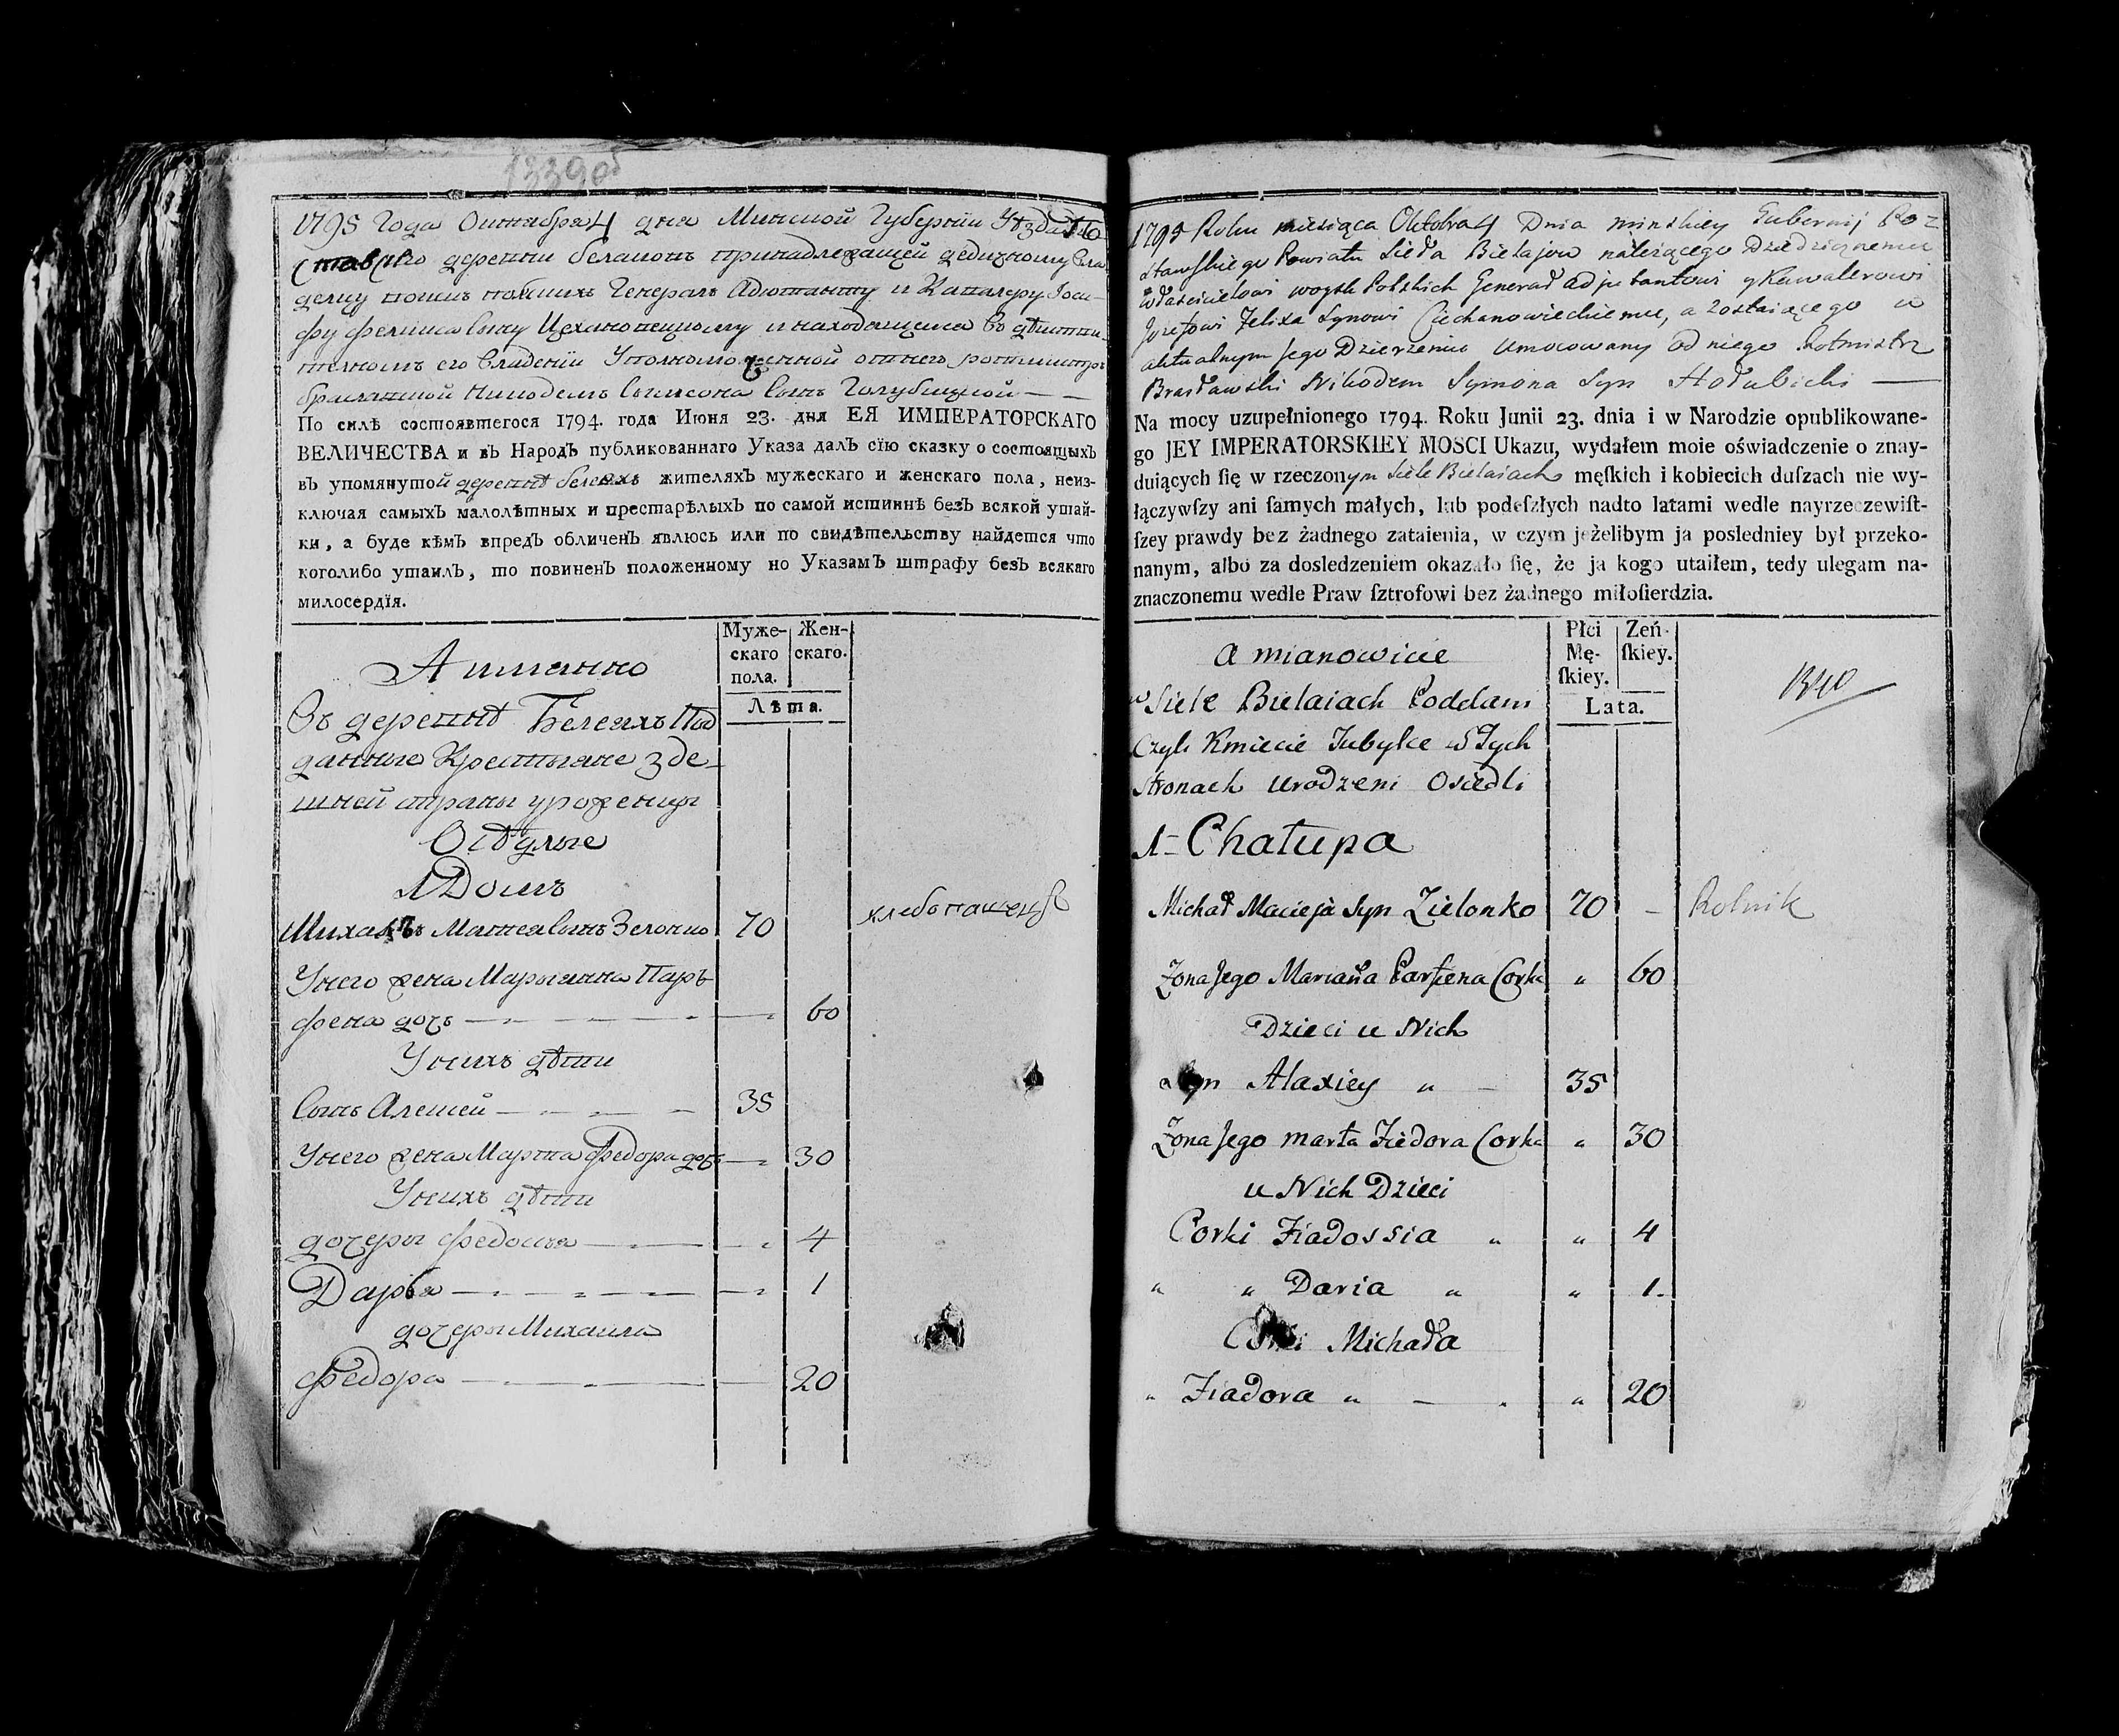 1339 об
1795 года Октября 4 дня Минской Губернии Уезда По
ставскаго деревни Белаювъ принадлежащей дедичному вла
делцу войскъ польскихъ Генералъ Адютанту и Кавалеру Иоси-
фу Феликса сыну Цехановецкому и находящемся въ дѣистви
телномъ его владении Уполномоченной отнего ротмистръ
браславской Никодемъ Симеона сынъ Голубицкой — —
По силѣ состоявшегося 1794. года Июня 23. дня ЕЯ ИМПЕРАТОРСКАГО
ВЕЛИЧЕСТВА и въ Народъ публикованнаго Указа далъ сїю сказку о состоящыхъ
въ упомянутой деревнѣ белеяхъ жителяхъ мужескаго и женскаго пола, неиз-
ключая самыхъ малолѣтных и престарѣлыхъ по самой истиннѣ безъ всякой утай-
ки, а буде кѣмъ впредъ обличенъ явлюсь или по свидѣтельству найдется что
коголибо утаилъ, то повиненъ положенному по Указамъ штрафу безъ всякаго
милосердїя.
Муже-
скаго
пола.
Жен-
скаго.
Лѣта.
А имянно
Въ деревнѣ Белеяхъ Под
данные Крестьяне зде-
шней страны уроженцы
Осѣдлые
1 Домъ
Михайлъ Матвея сынъ Зелонко 70 хлебопашецъ
Унего жена Марьянна Паръ
фена дочь — 60
Унихъ дѣти
Сынъ Алексей — 35
Унего жена Марта Федора дочь — 30
Унихъ дѣти
дочеры Федосья — 4
Дарья — 1
дочеры Михаила
Федора — 20
1795 Roku miesiąca Oktobra 4 Dnia minskiey Gubernij Poz
stawskiego Powiatu Sieła Bielajow należącego Dziedzicznemu
właścicielowi woysk Polskich Generał adjutantowi y Kawalerowi
Jozefowi Felixa Synowi Ciechanowieckiemu, a zostaiącego w
aktualnym Jego Dzierżeniu Umocowany od niego Rotmistrz
Brasławski Nikodem Symona Syn Hołubicki —
Na mocy uzupełnionego 1794. Roku Junii 23. dnia i w Narodzie opublikowane-
go JEY IMPERATORSKIEY MOSCI Ukazu, wydałem moie oświadczenie o znay-
duiących ſię w rzeczonym Siele Bielaiach męſkich i kobiecich duſzach nie wy-
łączywſzy ani ſamych małych, lub podeſzłych nadto latami wedle nayrzeczewiſt-
ſzey prawdy bez żadnego zataienia, w czym jeżelibym ja posledniey był przeko-
nanym, albo za dosledzeniem okazało ſię, że ja kogo utaiłem, tedy ulegam na-
znaczonemu wedle Praw ſztrofowi bez żadnego miłoſierdzia.
Płci
Mę-
ſkiey.
Zeń-
ſkiey.
Lata.
A mianowicie
w Siele Bielaiach Poddani
Czyli Kmiecie Tubylce w Tych
stronach urodzeni Osiedli
1= Chałupa
Michał Macieja Syn Zielonko 70 – Rolnik
Zona Jego Marianna Parfiena Corka „ 60
Dzieci u Nich
Syn Alaxiey „ – 35
Zona Jego marta Fiedora Corka „ 30
u Nich Dzieci
Corki Fiadossia „ „ 4
„ „ Daria „ „ 1.
Corki Michała
„ Fiadora „ – . „ 20